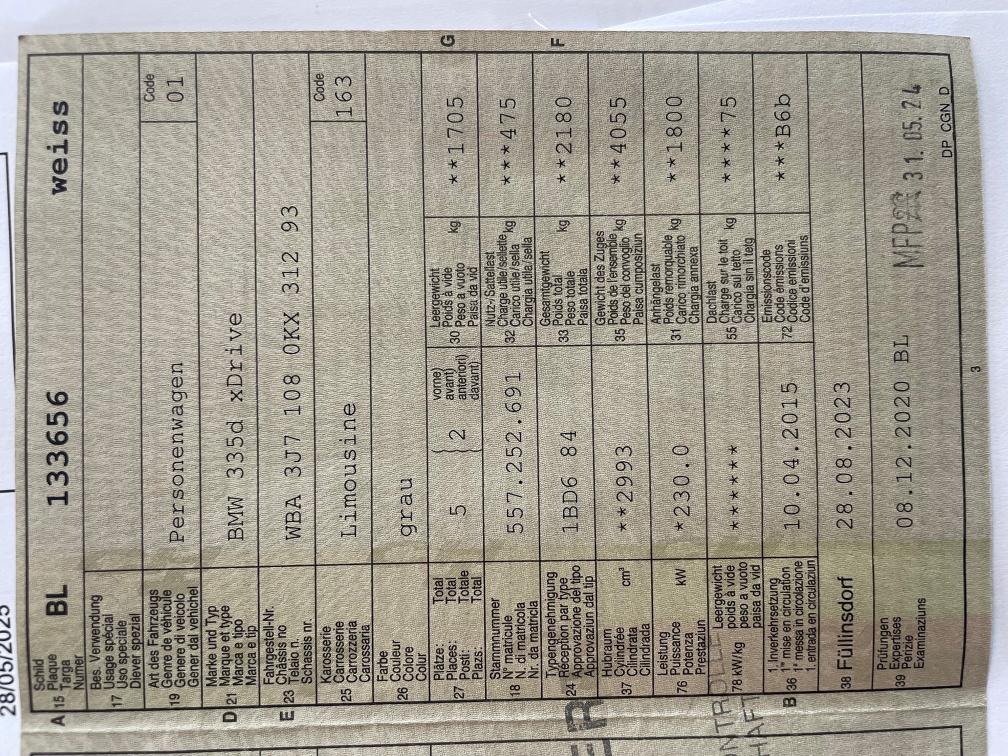 28/05/2025
A 15 Schild Plaque Targa Numer BL 133656 weiss
17 Bes. Verwendung Usage spécial Uso speciale Diever spezial
19 Art des Fahrzeugs Genre de véhicule Genere di veicolo Gener da vehichel Personenwagen Code 01
D 21 Marke und Typ Marque et type Marca e tipo Marca e tip BMW 335d xDrive
E 23 Fahrgestell-Nr. Châssis no Telaio n. Schassis nr. WBA 3J7 108 0KX 312 93
25 Karosserie Carrosserie Carrozzeria Carossaria Limousine Code 163
26 Farbe Couleur Colore Colur grau
27 Plätze: Places: Posti: Plazs: Total Total Totale Total 5 { 2 vorne) avant) anteriori) davant) 30 Leergewicht Poids à vide Peso a vuoto Paisa da vid kg **1705 G
18 Stammnummer N° matricule N. di matricola Nr. da matricla 557.252.691 32 Nutz-/Sattellast Charge utile/sellette Carico utile/sella Chargia utila/sella kg ***475
24 Typengenehmigung Réception par type Approvazione del tipo Approvaziun dal tip 1BD6 84 33 Gesamtgewicht Poids total Peso totale Paisa totala kg **2180 F
37 Hubraum Cylindrée Cilindrata Cilindrada cm³ **2993 35 Gewicht des Zuges Poids de l'ensemble Peso del convoglio Paisa cumposiziun kg **4055
76 Leistung Puissance Potenza Prestaziun kW *230.0 31 Anhängelast Poids remorquable Carico rimorchiato Chargia annexa kg **1800
78 kW/kg Leergewicht poids à vide peso a vuoto paisa da vid ****** 55 Dachlast Charge sur le toit Carico sul tetto Chargia sin il tetg kg *****75
B 36 1. Inverkehrsetzung 1re mise en circulation 1a messa in circolazione 1. entrada en circulaziun 10.04.2015 72 Emissionscode Code émissions Codice emissioni Code d'emissiuns ***B6b
38 Füllinsdorf 28.08.2023
39 Prüfungen Expertises Perizie Examinaziuns 08.12.2020 BL MFP 31.05.24
DP_CGN_D
3